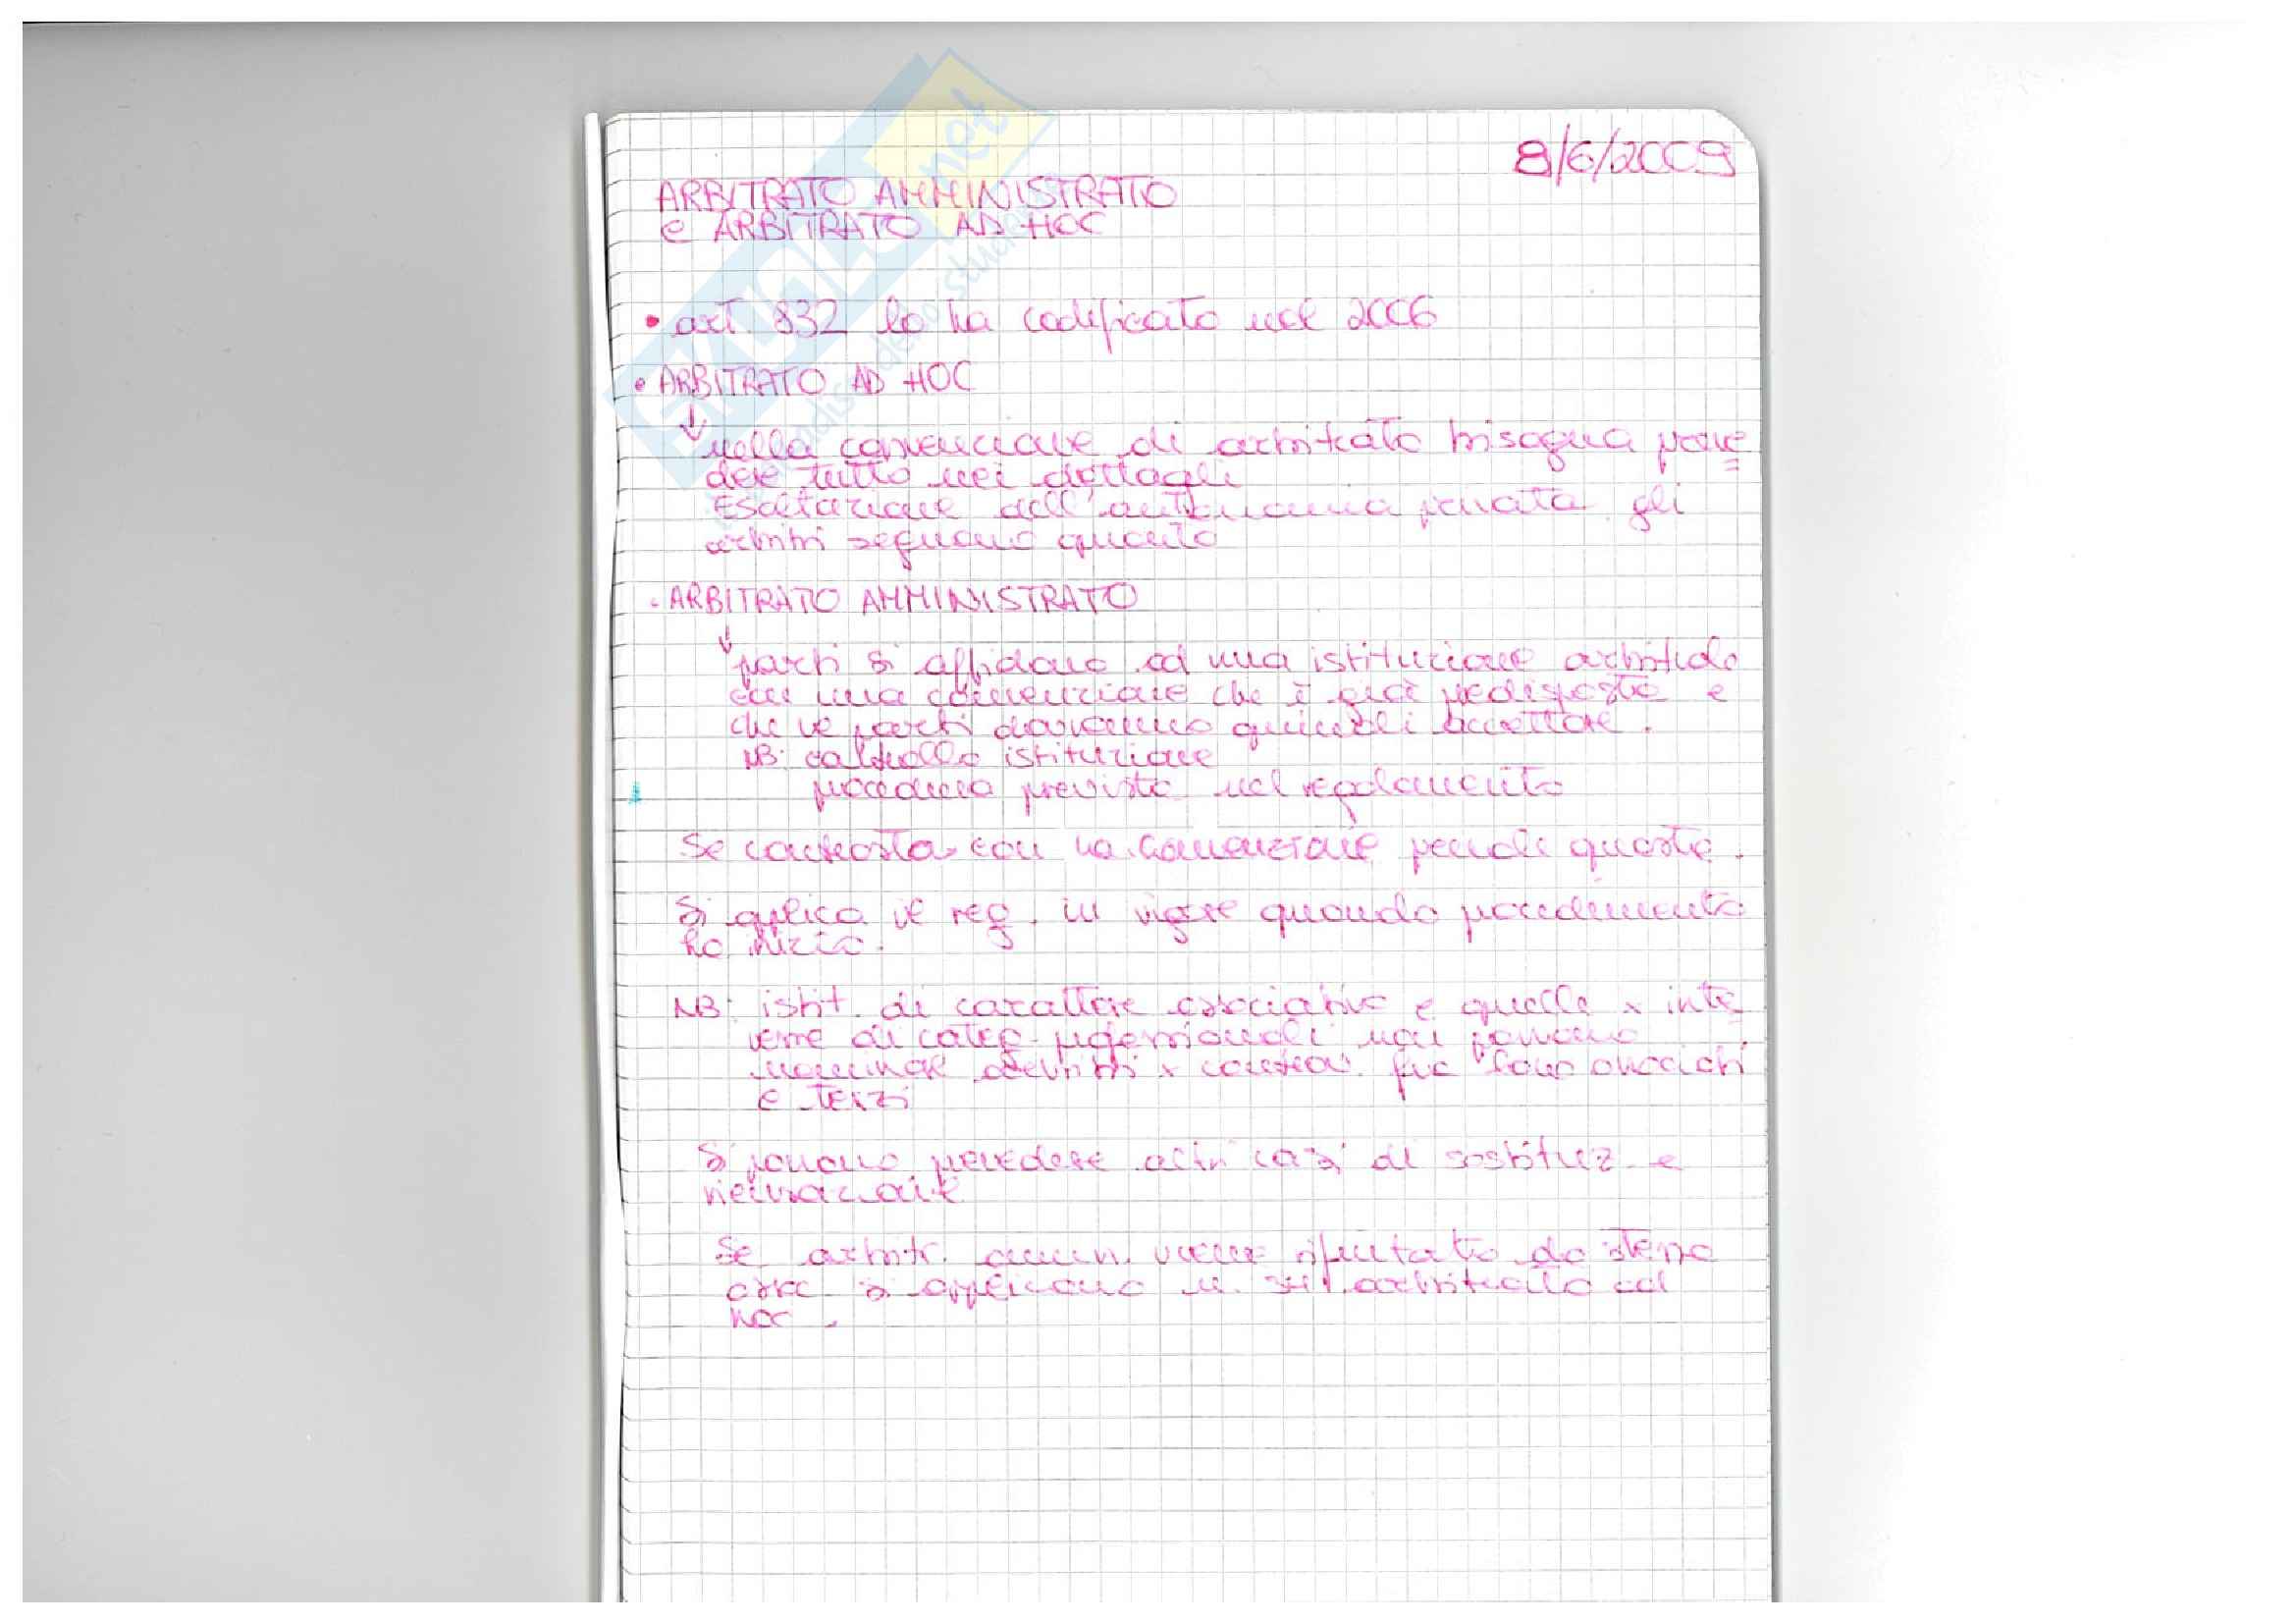 8/6/2009
ARBITRATO AMMINISTRATO
e ARBITRATO AD HOC
• art 832 lo ha codificato nel 2006
• ARBITRATO AD HOC
↓
nella convenzione di arbitrato bisogna preve
dere tutto nei dettagli
Esaltazione dell'autonomia privata gli
arbitri seguono quanto
• ARBITRATO AMMINISTRATO
↓
parti si affidano ad una istituzione arbitrale
con una convenzione che è già predisposta e
che le parti dovranno quindi accettare.
NB: controllo istituzione
procedura prevista nel regolamento
Se contrasta con la convenzione prevale questa.
Si applica il reg. in vigore quando procedimento
ha inizio.
NB: istit. di carattere associativo e quelle x inte
resse di categ. professionali non possono
nominare arbitri x controv. fra loro associati
e terzi
Si possono prevedere altri casi di sostituz. e
ricusazione
Se arbitr. amm. viene rifiutato da stesso
si applicano arbitrato ad
hoc.